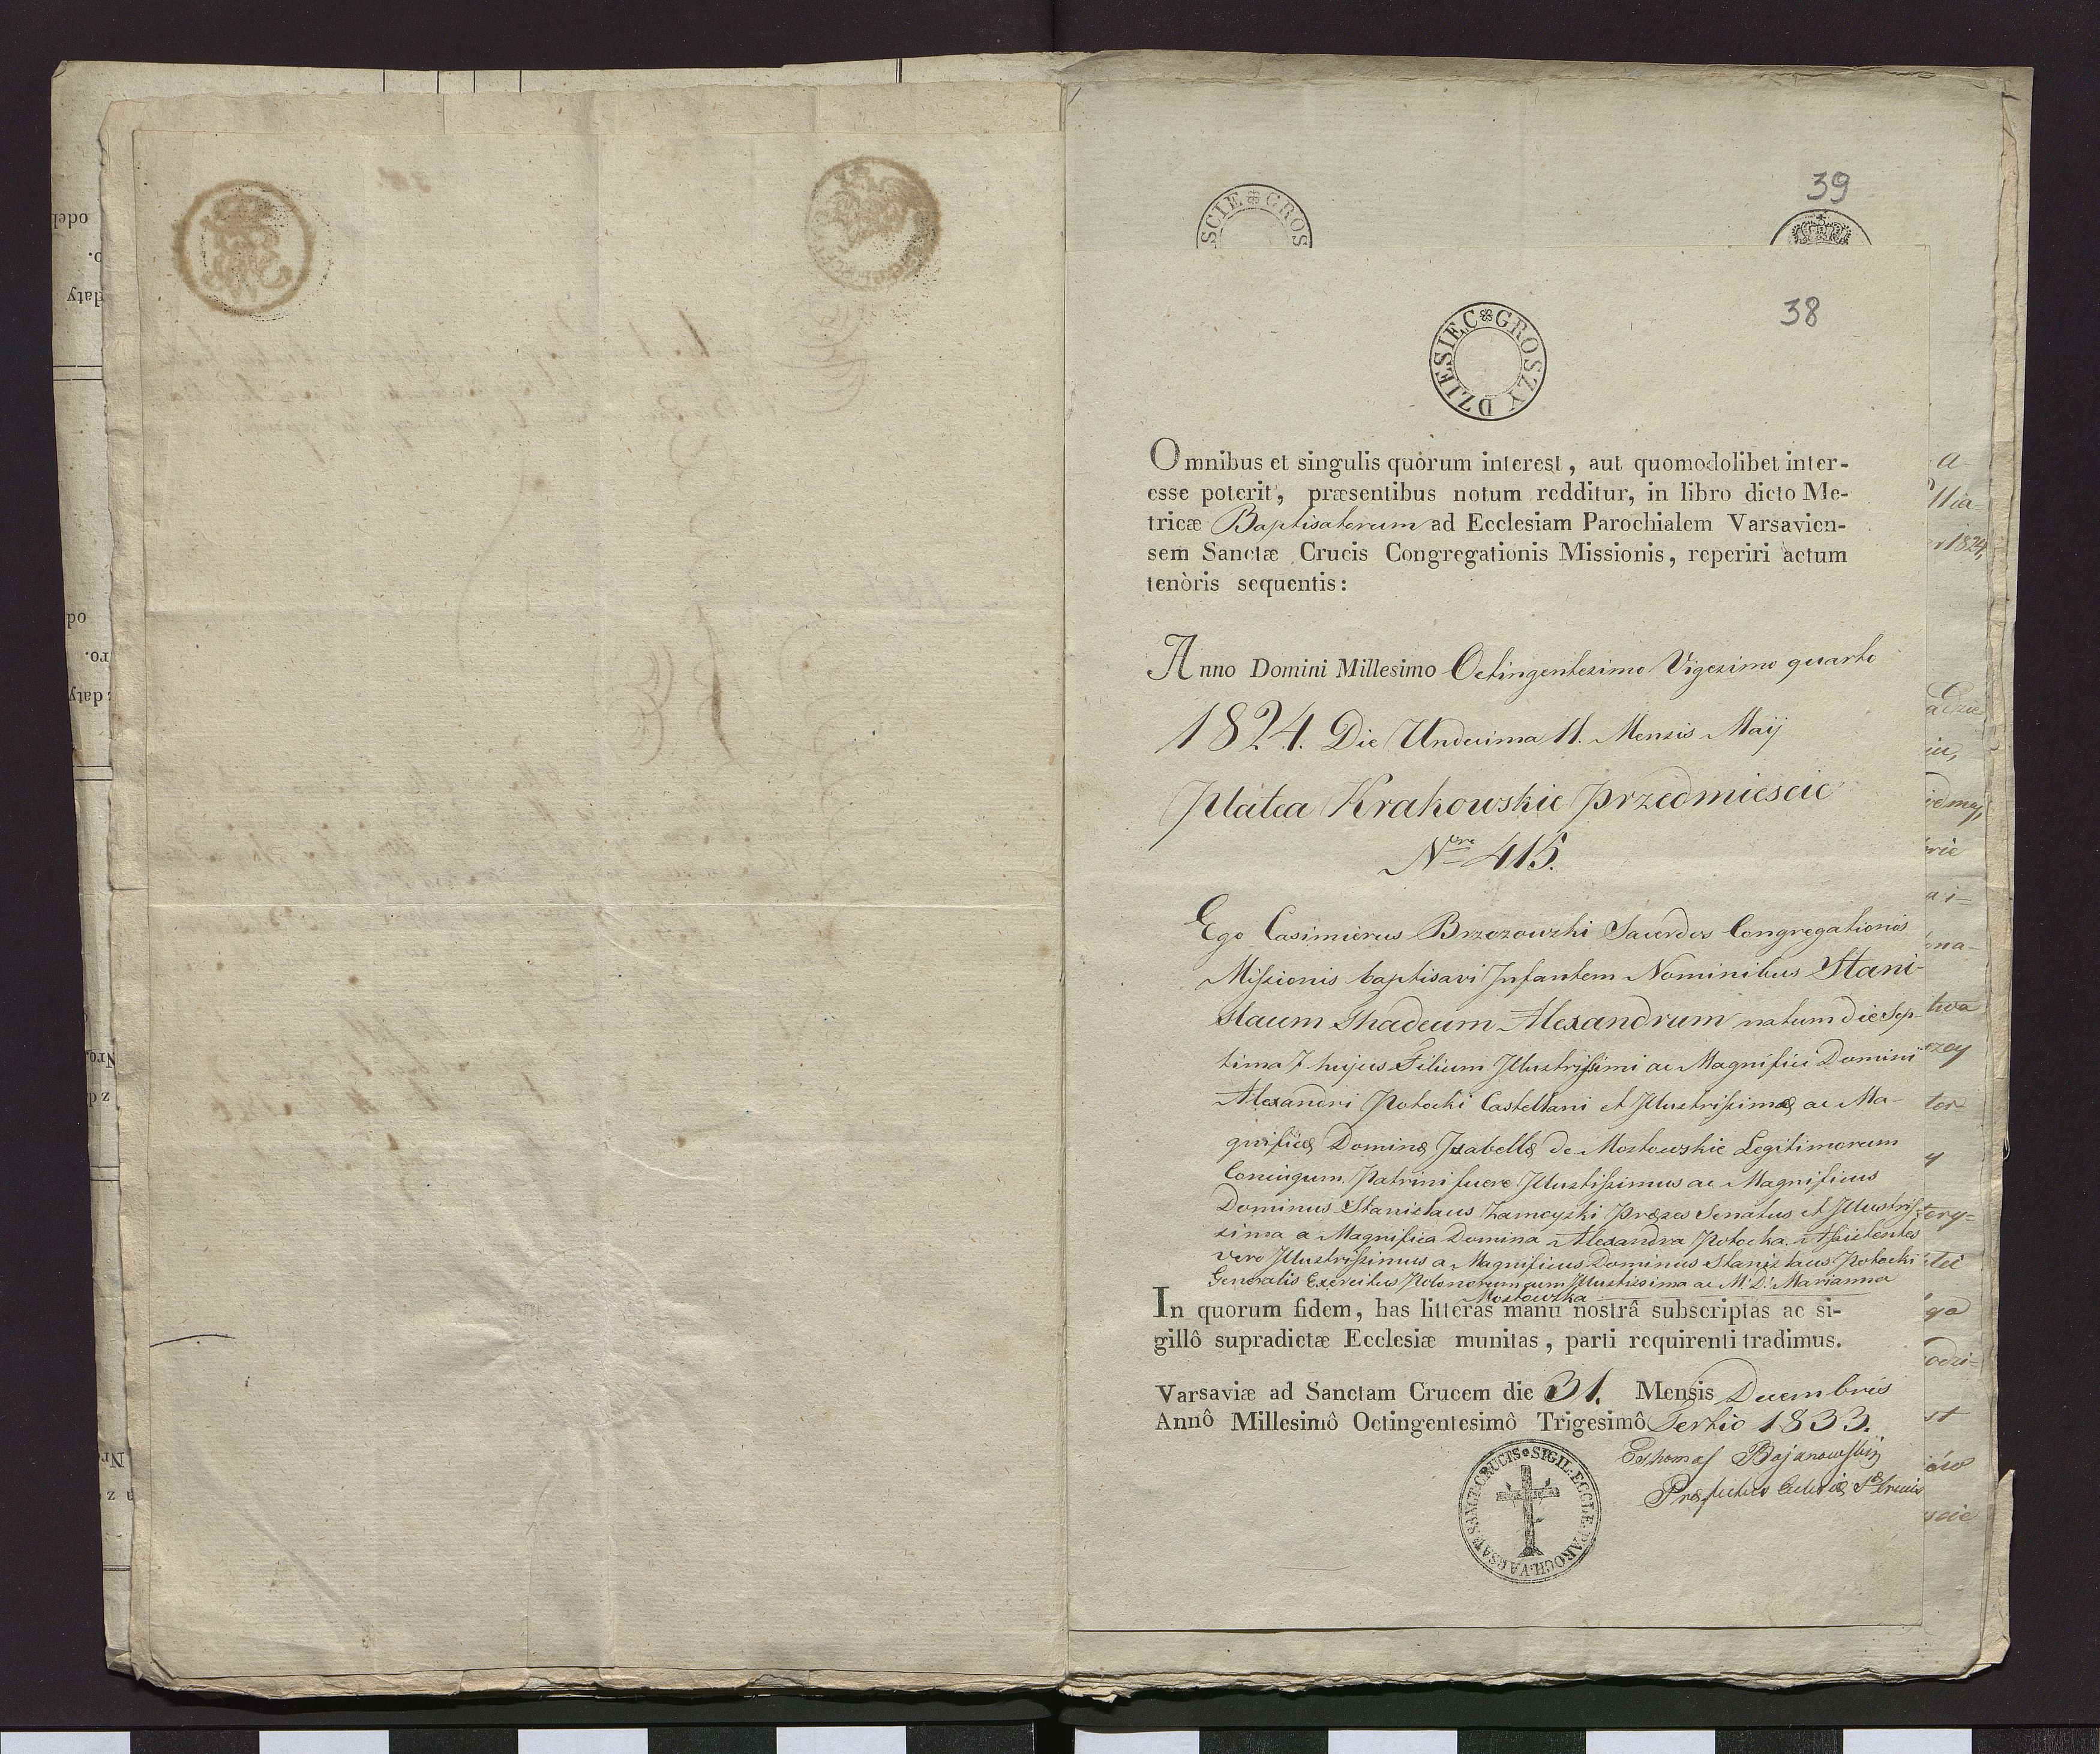 39
SCIE GROS
38
DZIESIEC GROSZY
Omnibus et singulis quòrum interest, aut quomodolibet inter-
esse poterit, præsentibus notum redditur, in libro dicto Me-
tricæ Baptisatorum ad Ecclesiam Parochialem Varsavien-
sem Sanctæ Crucis Congregationis Missionis, reperiri actum
tenòris sequentis:
Anno Domini Millesimo Octingentesimo Vigesimo quarto
1824. Die Undecima 11. Mensis Maij
Platea Krakowskie Przedmiescie
Nro 415.
Ego Casimirus Brzozowski Sacerdos Congregationis
Missionis baptisavi Infantem Nominibus Stani-
slaum Thadeum Alexandrum natum die Sep-
tima 7 hujus Filium Illustrissimi ac Magnifici Domini
Alexandri Potocki Castellani et Illustrissimæ ac Ma-
gnificæ Dominæ Isabellæ de Mostowskie Legitimorum
Coniugum Patrini fuere Illustissimus ac Magnificus
Dominus Stanislaus Zamoyski Præses Senatus et Illustris-
sima a Magnifica Domina Alexandra Potocka. Assistentes
vero Illustrissimus a Magnificus Dominus Stanislaus Potocki
Generalis Exercitus Polonorum cum Illustissima ac M. D. Marianna
Mostowska
In quorum fidem, has litteras manu nostrâ subscriptas ac si-
gillô supradictæ Ecclesiæ munitas, parti requirenti tradimus.
Varsaviæ ad Sanctam Crucem die 31. Mensis Decembris
Annô Millesimô Octingentesimô Trigesimô Tertio 1833.
Thomas Bojanowskij
Præfectus Ecclesiæ S. Crucis
SIGIL. ECCLE. PAROCH. VARSAV. SANCT. CRUCIS